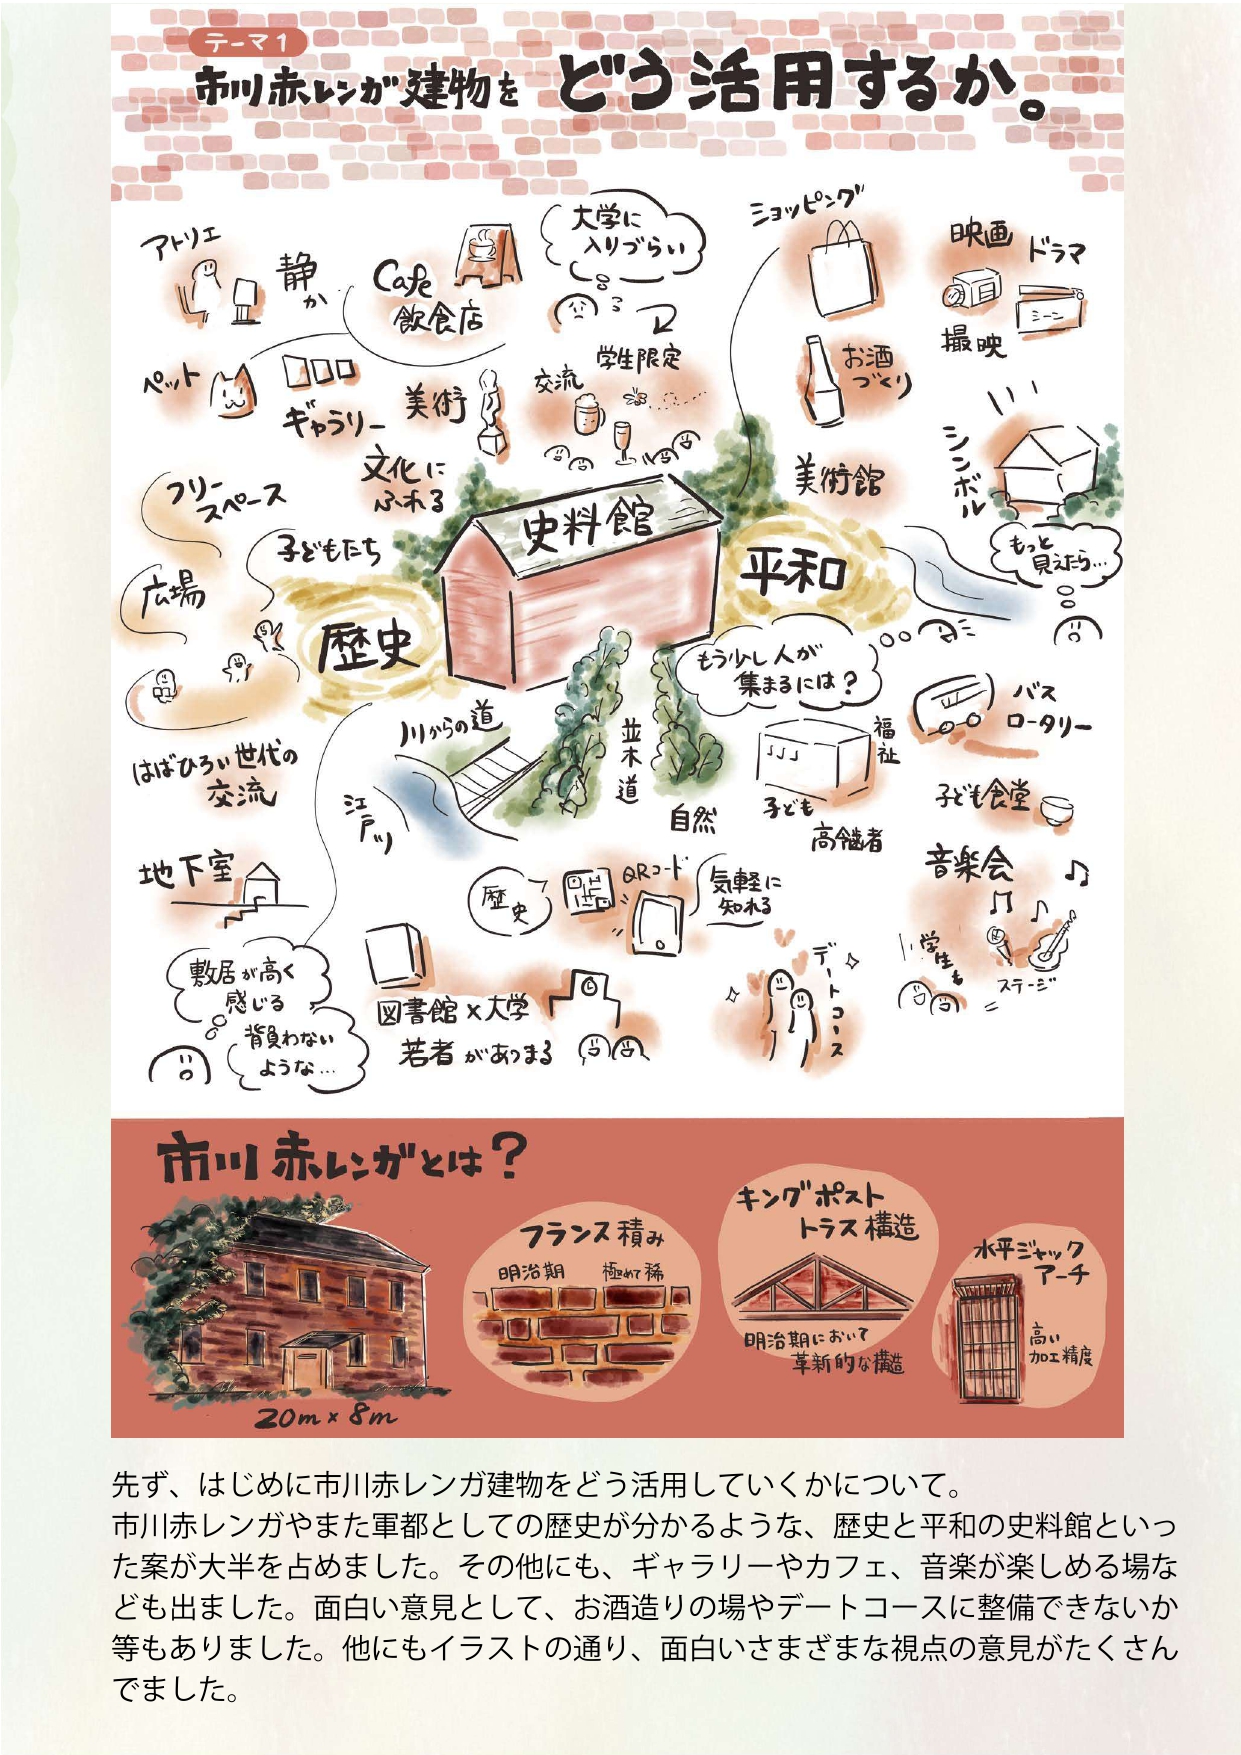 テーマ1
市川赤レンガ建物を どう活用するか。
アトリエ
静か
Cafe
飲食店
大学に
入りづらい
ショッピング
映画
ドラマ
シーン
撮映
ペット
ギャラリー
美術
学生限定
交流
お酒
づくり
文化に
ふれる
美術館
シンボル
もっと
見えたら…
フリー
スペース
子どもたち
広場
史料館
歴史
平和
もう少し人が
集まるには?
はばひろい世代の
交流
川からの道
江戸川
並木道
自然
福祉
子ども
高齢者
バス
ロータリー
子ども食堂
地下室
歴史
QRコード
気軽に
知れる
音楽会
学生も
ステージ
敷居が高く
感じる
背負わない
ような…
図書館×大学
若者があつまる
デートコース
市川赤レンガとは?
20m×8m
フランス積み
明治期 極めて稀
キングポスト
トラス構造
明治期において
革新的な構造
水平ジャック
アーチ
高い
加工精度
先ず、はじめに市川赤レンガ建物をどう活用していくかについて。
市川赤レンガやまた軍都としての歴史が分かるような、歴史と平和の史料館といっ
た案が大半を占めました。その他にも、ギャラリーやカフェ、音楽が楽しめる場な
ども出ました。面白い意見として、お酒造りの場やデートコースに整備できないか
等もありました。他にもイラストの通り、面白いさまざまな視点の意見がたくさん
でました。